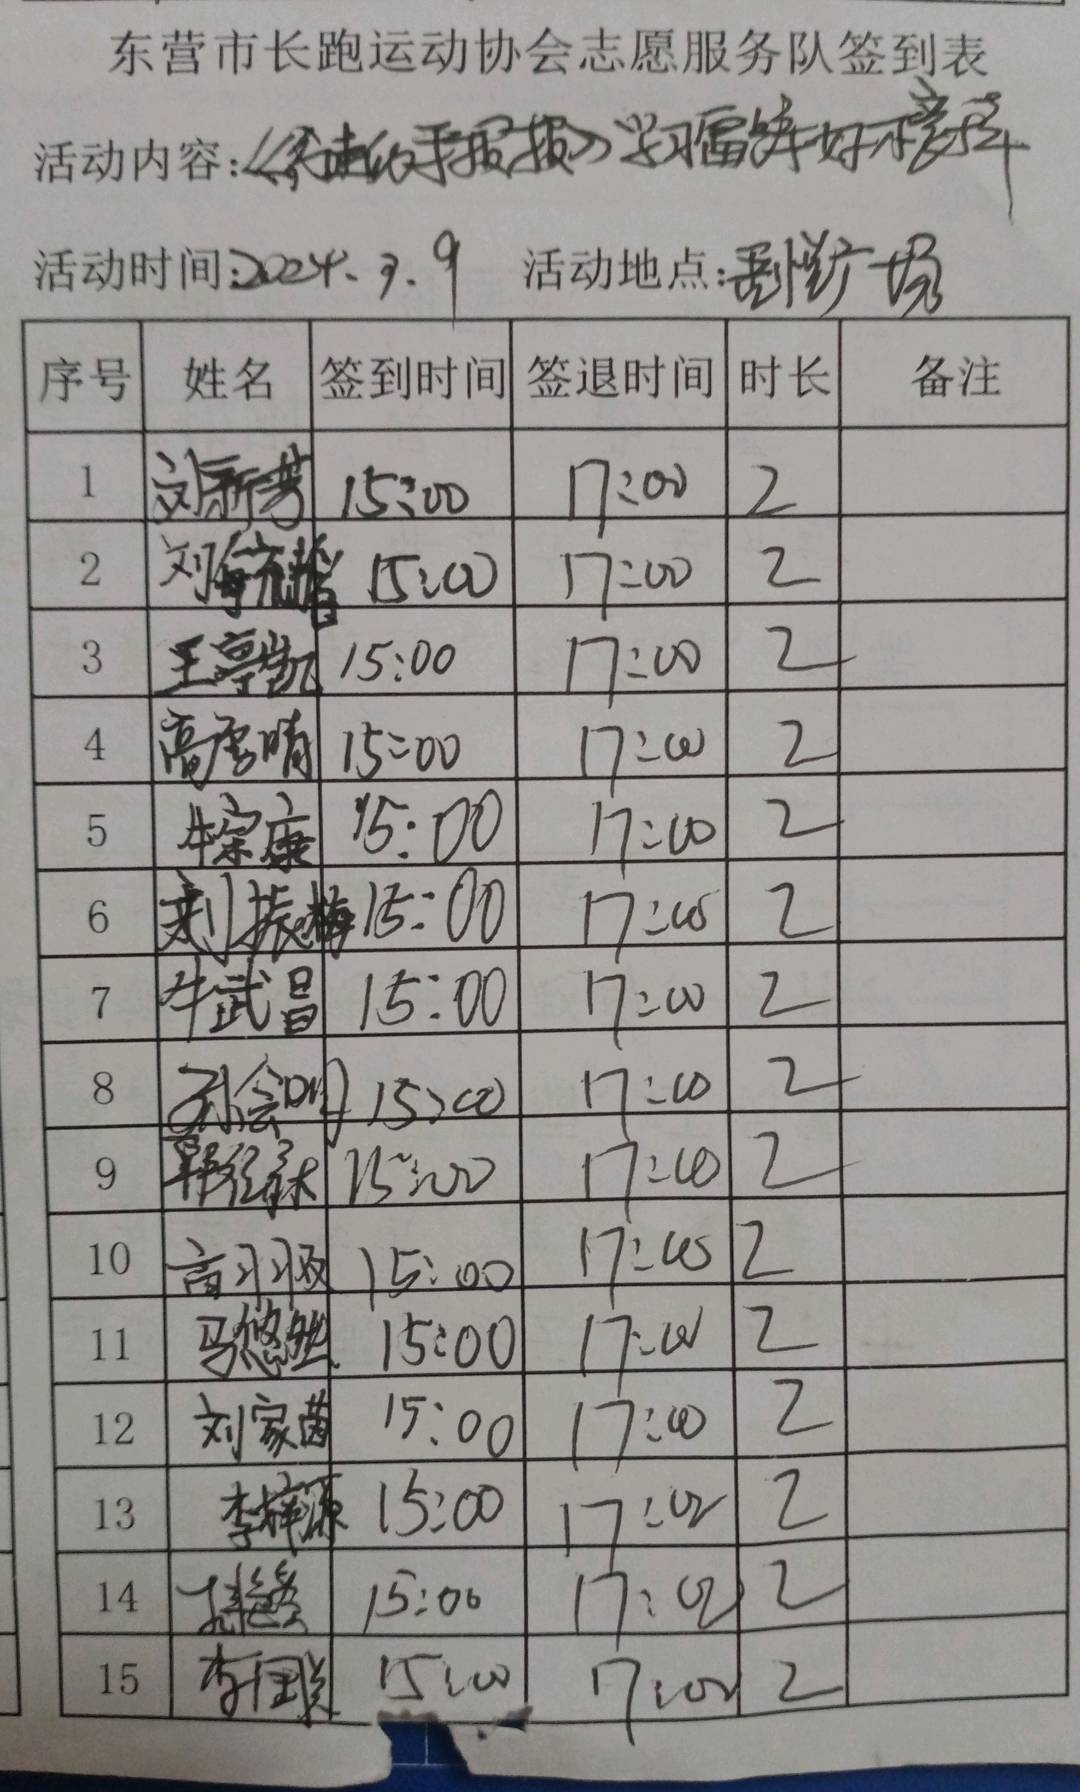 东营市长跑运动协会志愿服务队签到表
活动内容:《手报报》学习雷锋好榜样
活动时间:2024.3.9 活动地点:广场
序号 姓名 签到时间 签退时间 时长 备注
1 刘新芳 15:00 17:00 2
2 刘 15:00 17:00 2
3 王亭凯 15:00 17:00 2
4 高雪晴 15:00 17:00 2
5 牛宗康 15:00 17:00 2
6 刘振梅 15:00 17:00 2
7 牛武昌 15:00 17:00 2
8 孙会明 15:00 17:00 2
9 15:00 17:00 2
10 高 15:00 17:00 2
11 马悠然 15:00 17:00 2
12 刘家茵 15:00 17:00 2
13 李梓源 15:00 17:00 2
14 15:00 17:00 2
15 李 15:00 17:00 2